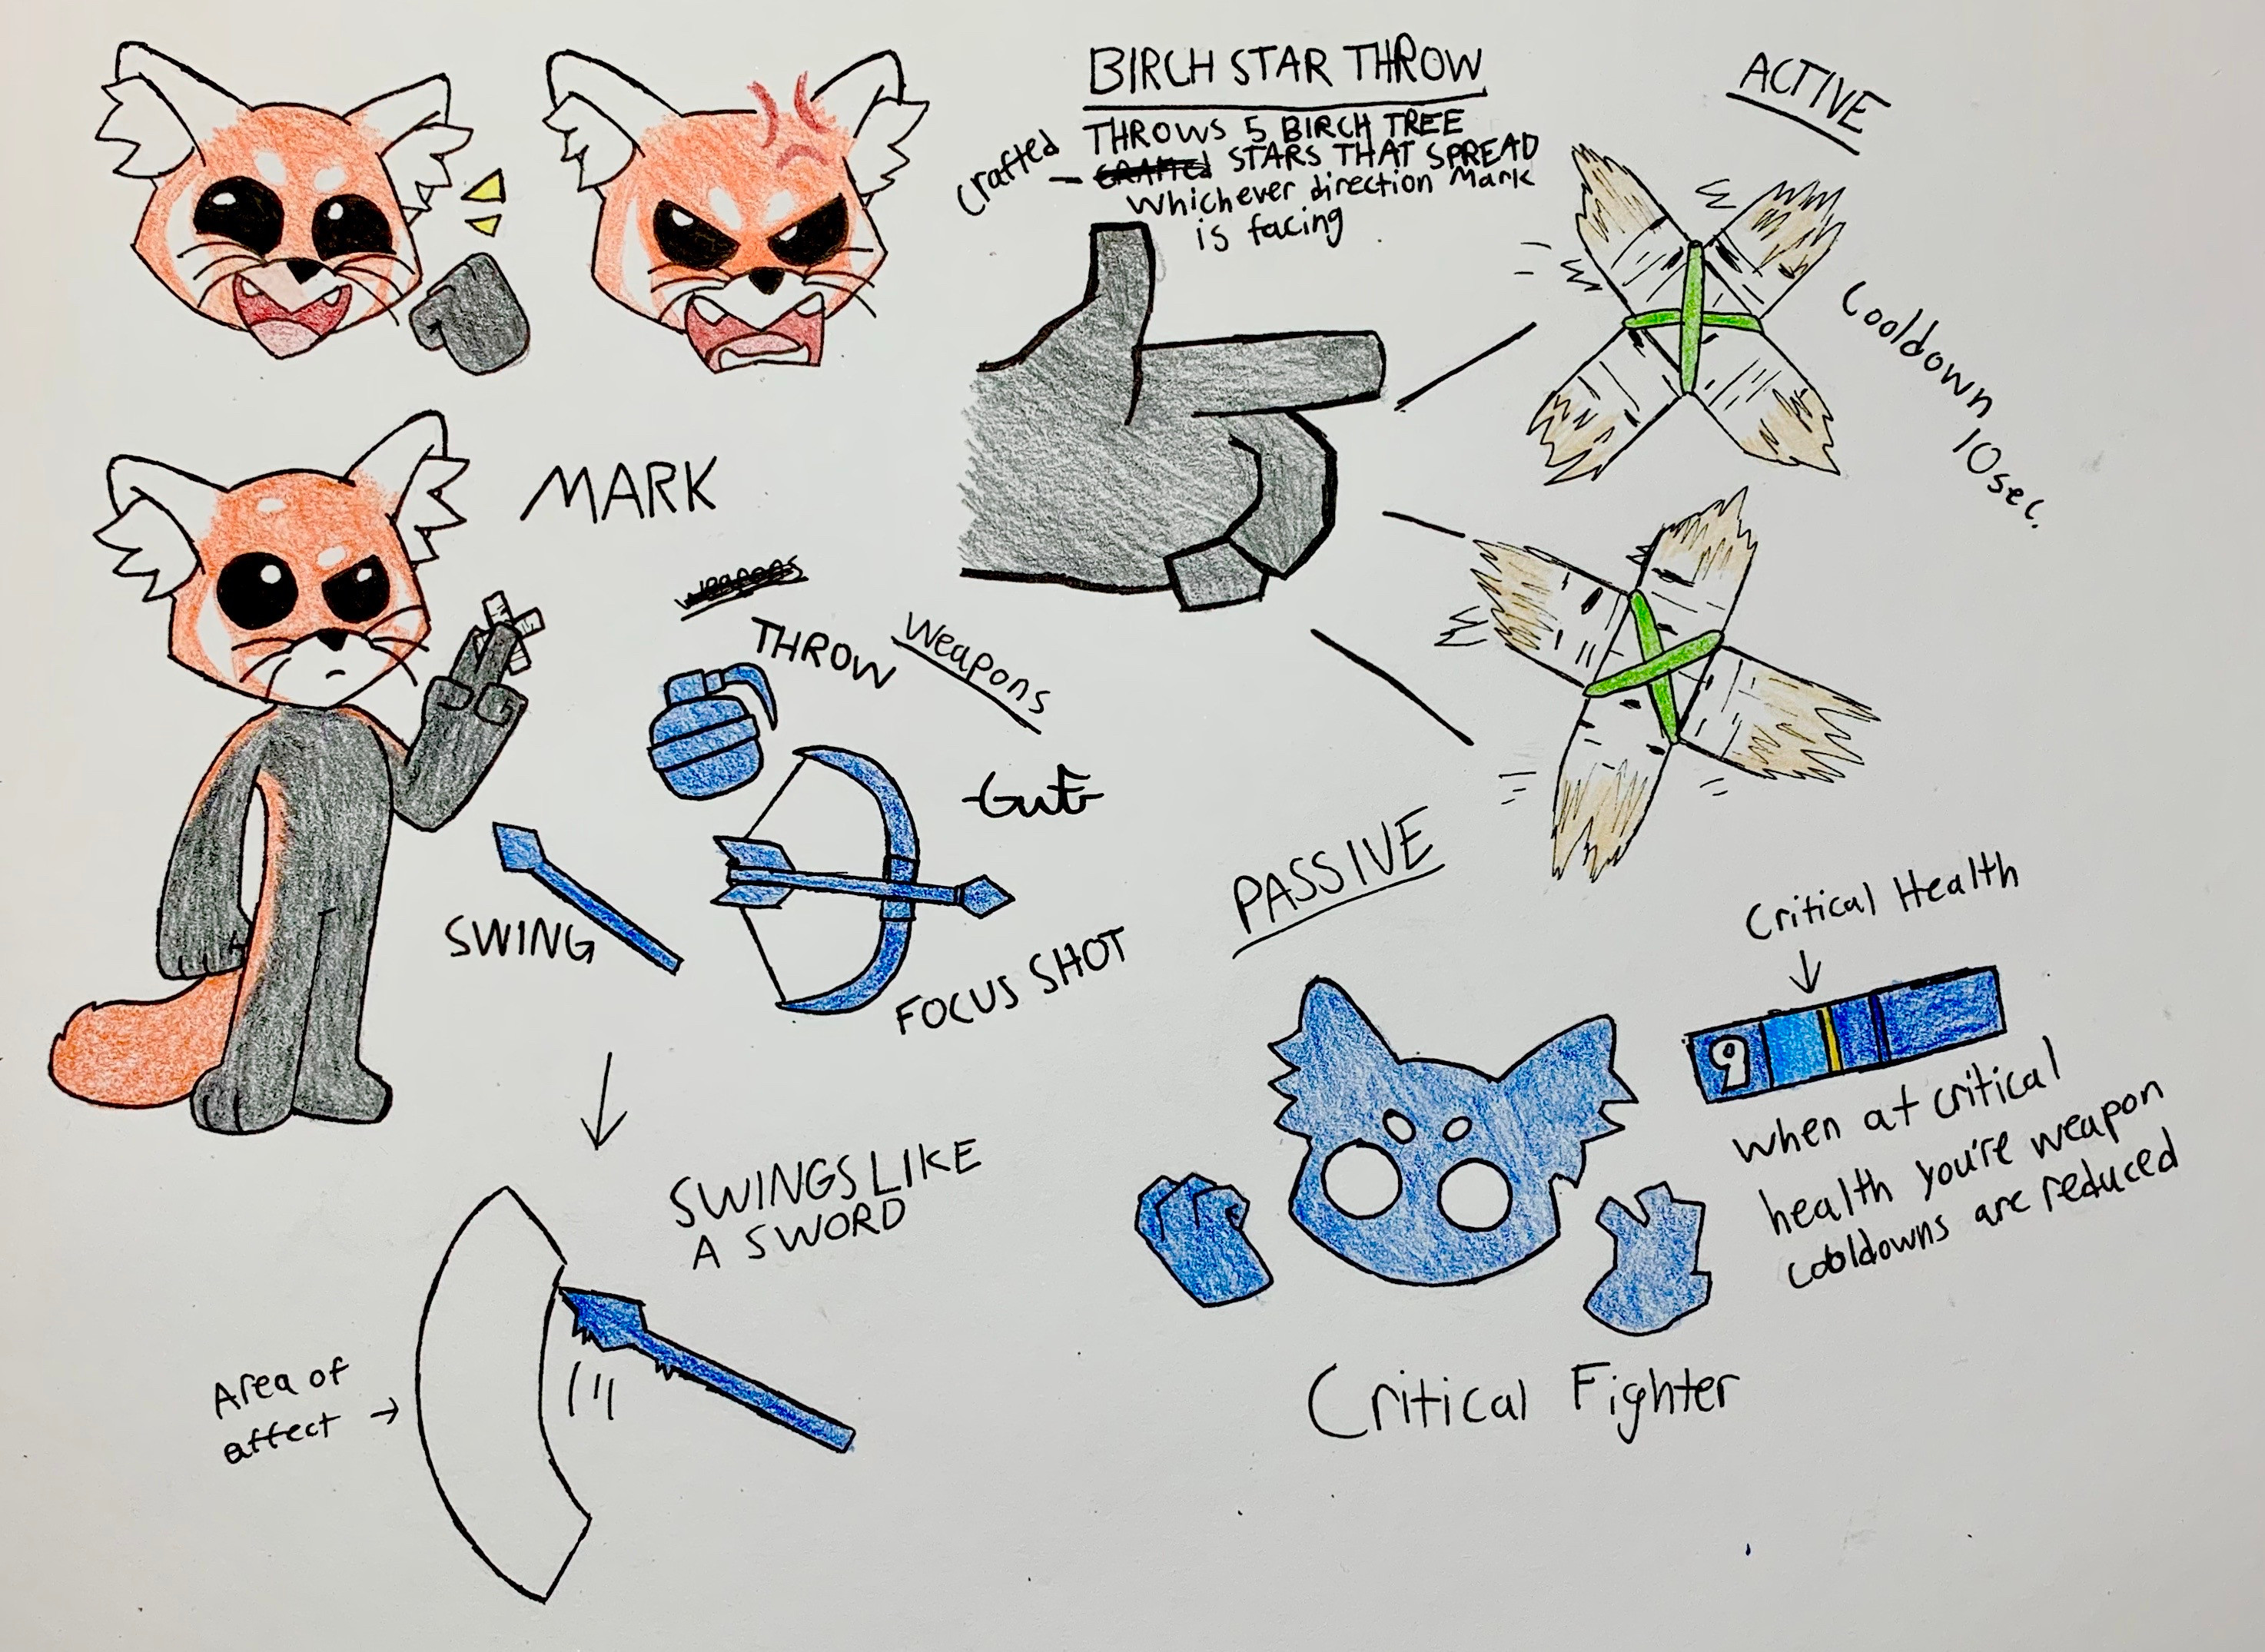 BIRCH STAR THROW
THROWS 5 BIRCH TREE
Crafted STARS THAT SPREAD
Whichever direction Mark
is facing
ACTIVE
Cooldown 10sec.
MARK
THROW
Weapons
SWING
FOCUS SHOT
SWINGS LIKE
A SWORD
Area of
affect
PASSIVE
Critical Health
9
when at critical
health you're weapon
cooldowns are reduced
Critical Fighter